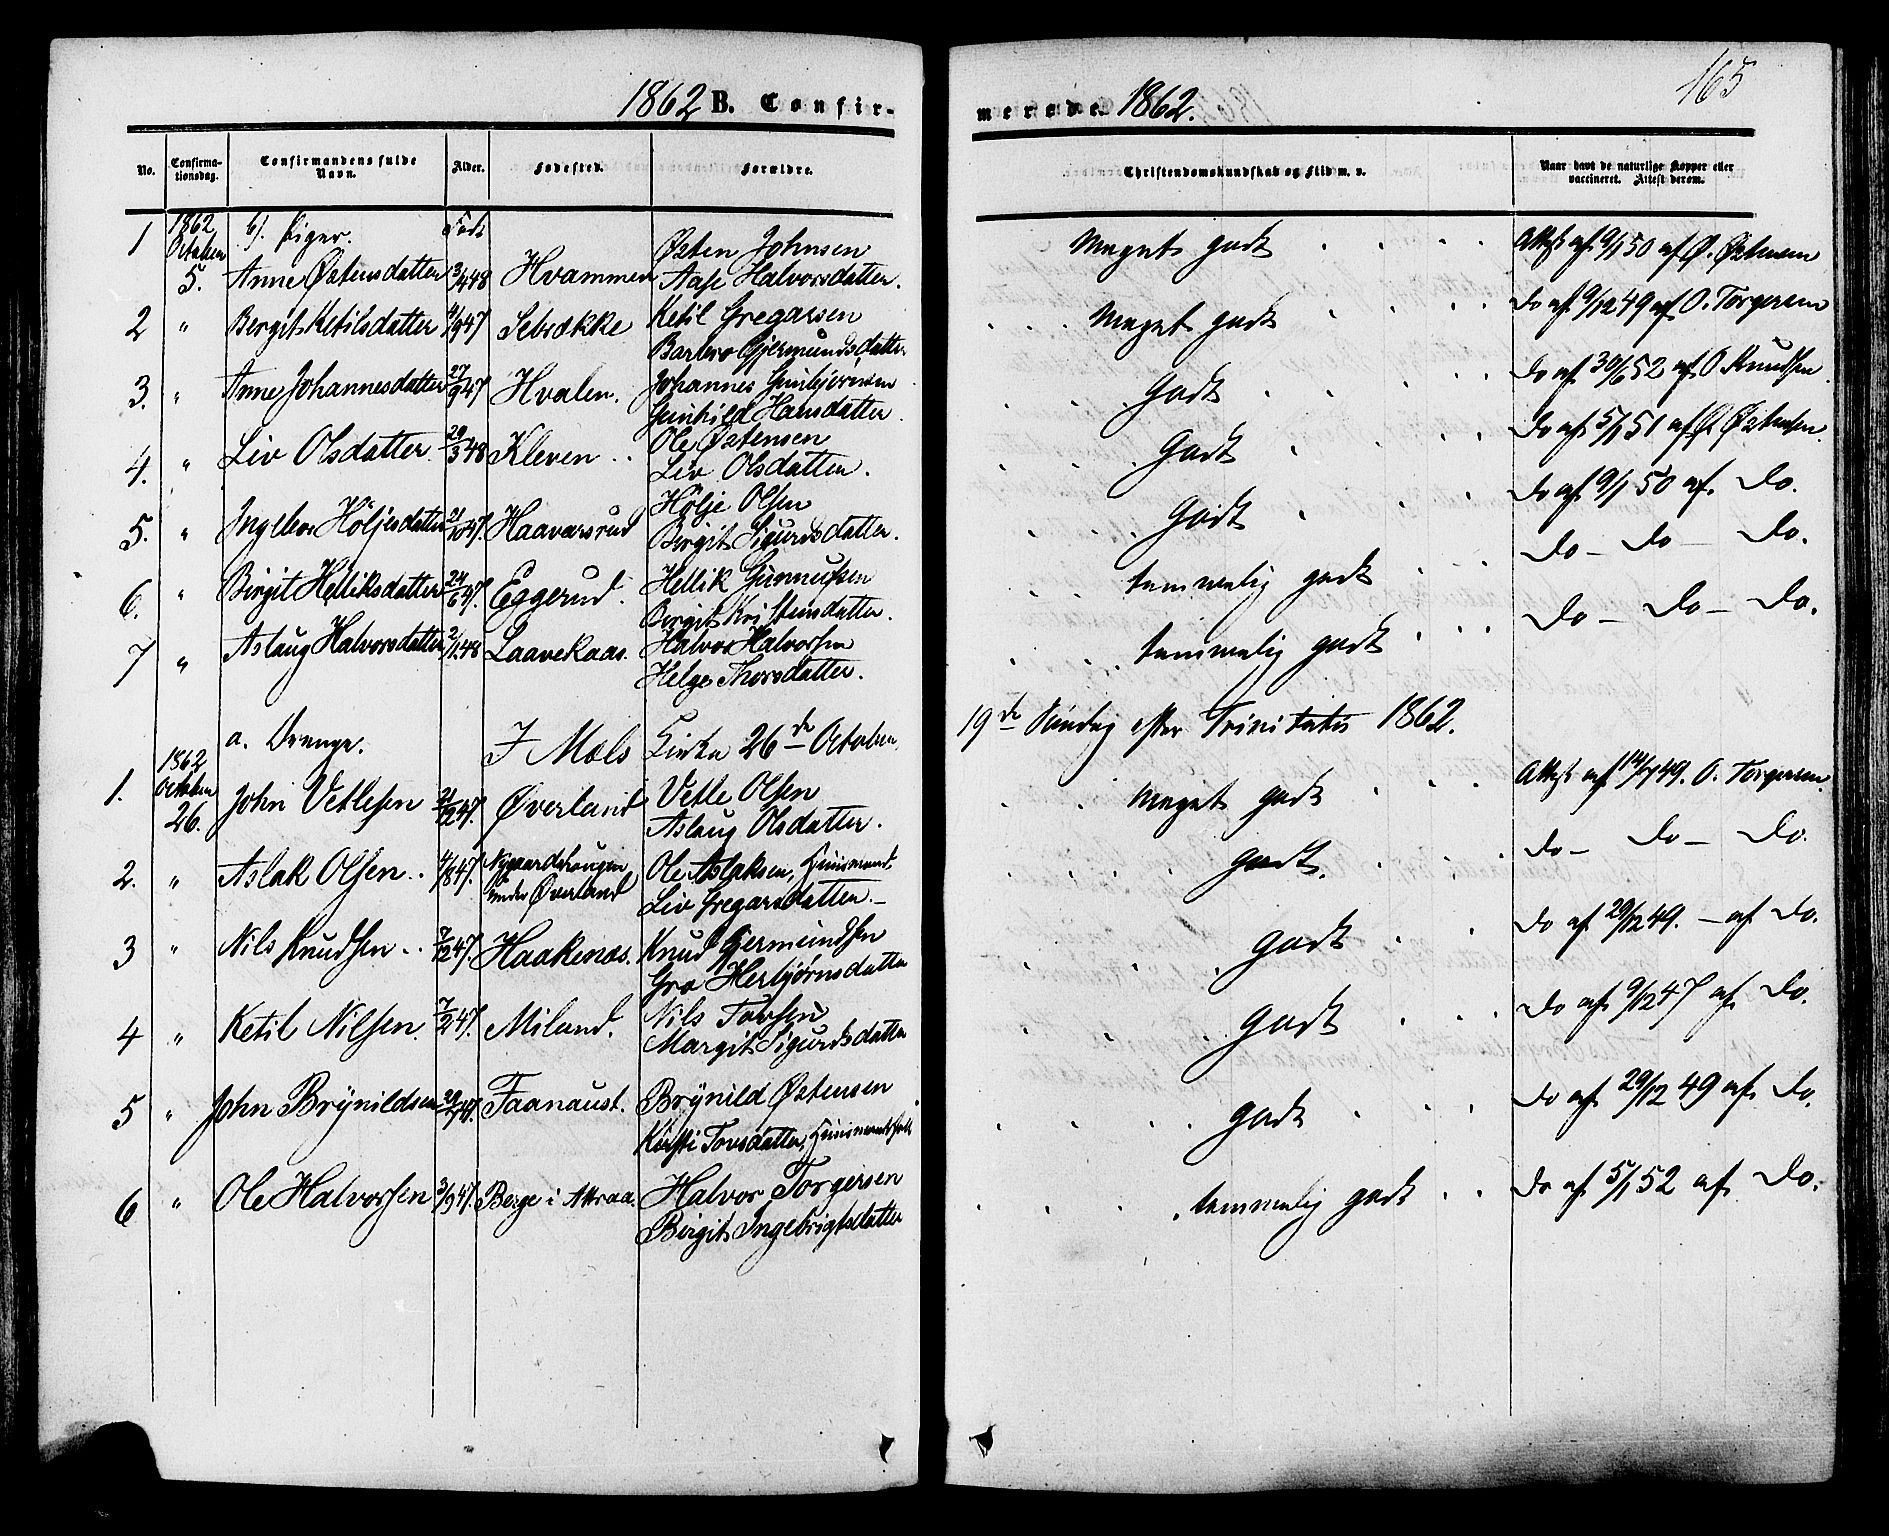 1862 B. Confir-
merede 1862.
165
No.
Confirma-
tionsdag.
Confirmandens fulde
Navn.
Alder.
Fødested.
Forældre.
Christendomskundskab og Flid m. v.
Naar havt de naturlige Kopper eller
vaccineret. Attest derom.
1862 b). Piger. Født
1 October 5. Anne Østensdatter 3/4 48 Hvammen Østen Johnsen
Aase Halvorsdatter. Meget godt Attest af 9/1 50 af Ø. Østensen
2 " Bergit Ketilsdatter /9 47 Selvække Ketil Gregarsen
Barbro Gjermundsdatter Meget godt Do af 9/12 49 af O. Torgersen
3. " Anne Johannesdatter 27/9 47 Hvalen. Johannes Gunbjørnsen
Gunhild Hansdatter. Godt Do af 30/6 52 af O. Knudsen
4. " Liv Olsdatter 20/3 48 Kleven Ole Østensen
Liv Olsdatter. Godt Do af 5/1 51 af Ø. Østensen.
5. " Ingebor Höljesdatter 21/10 47. Haavarsrud Hölje Olsen
Birgit Sigurdsdatter. Godt Do af 9/1 50 af. Do.
6. " Birgit Helliksdatter 24/6 47. Eggerud. Hellik Gunnufsen
Birgit Kristensdatter. temmelig godt Do – Do – Do.
7 " Aslaug Halvorsdatter 2/1 48 Laavekaas. Halvor Halvorsen
Helge Thorsdatter. temmelig godt Do – Do – Do.
a. Drenge. I Mæls Kirke 26de October, 19de Søndag efter Trinitatis 1862.
1. 1862 October 26. John Vetlesen 21/2 47. Øverland Vetle Olsen
Aslaug Olsdatter. meget godt Attest af 14/7 49. O. Torgersen.
2. " Aslak Olsen 4/8 47. Nygaardshaugen
under Øverland Ole Aslaksen, Huusmand.
Liv Gregarsdatter. godt. Do – Do – Do.
3 " Nils Knudsen 7/2 47. Haakenæs. Knud Gjermundsen
Gro Herbjørnsdatter godt Do af 29/12 49. – af Do.
4 " Ketil Nilsen. 7/2 47. Miland. Nils Torsen
Margit Sigurdsdatter godt Do af 9/12 47 af Do.
5 " John Brynildsen 47. Faanaust. Brynild Østensen
Kirsti Torsdatter, Huusmandsfolk godt Do af 29/12 49 af Do.
6 " Ole Halvorsen 3/9 47. Berge i Attraa. Halvor Torgersen
Birgit Ingebrigtsdatter temmelig godt Do af 5/1 52 af Do.